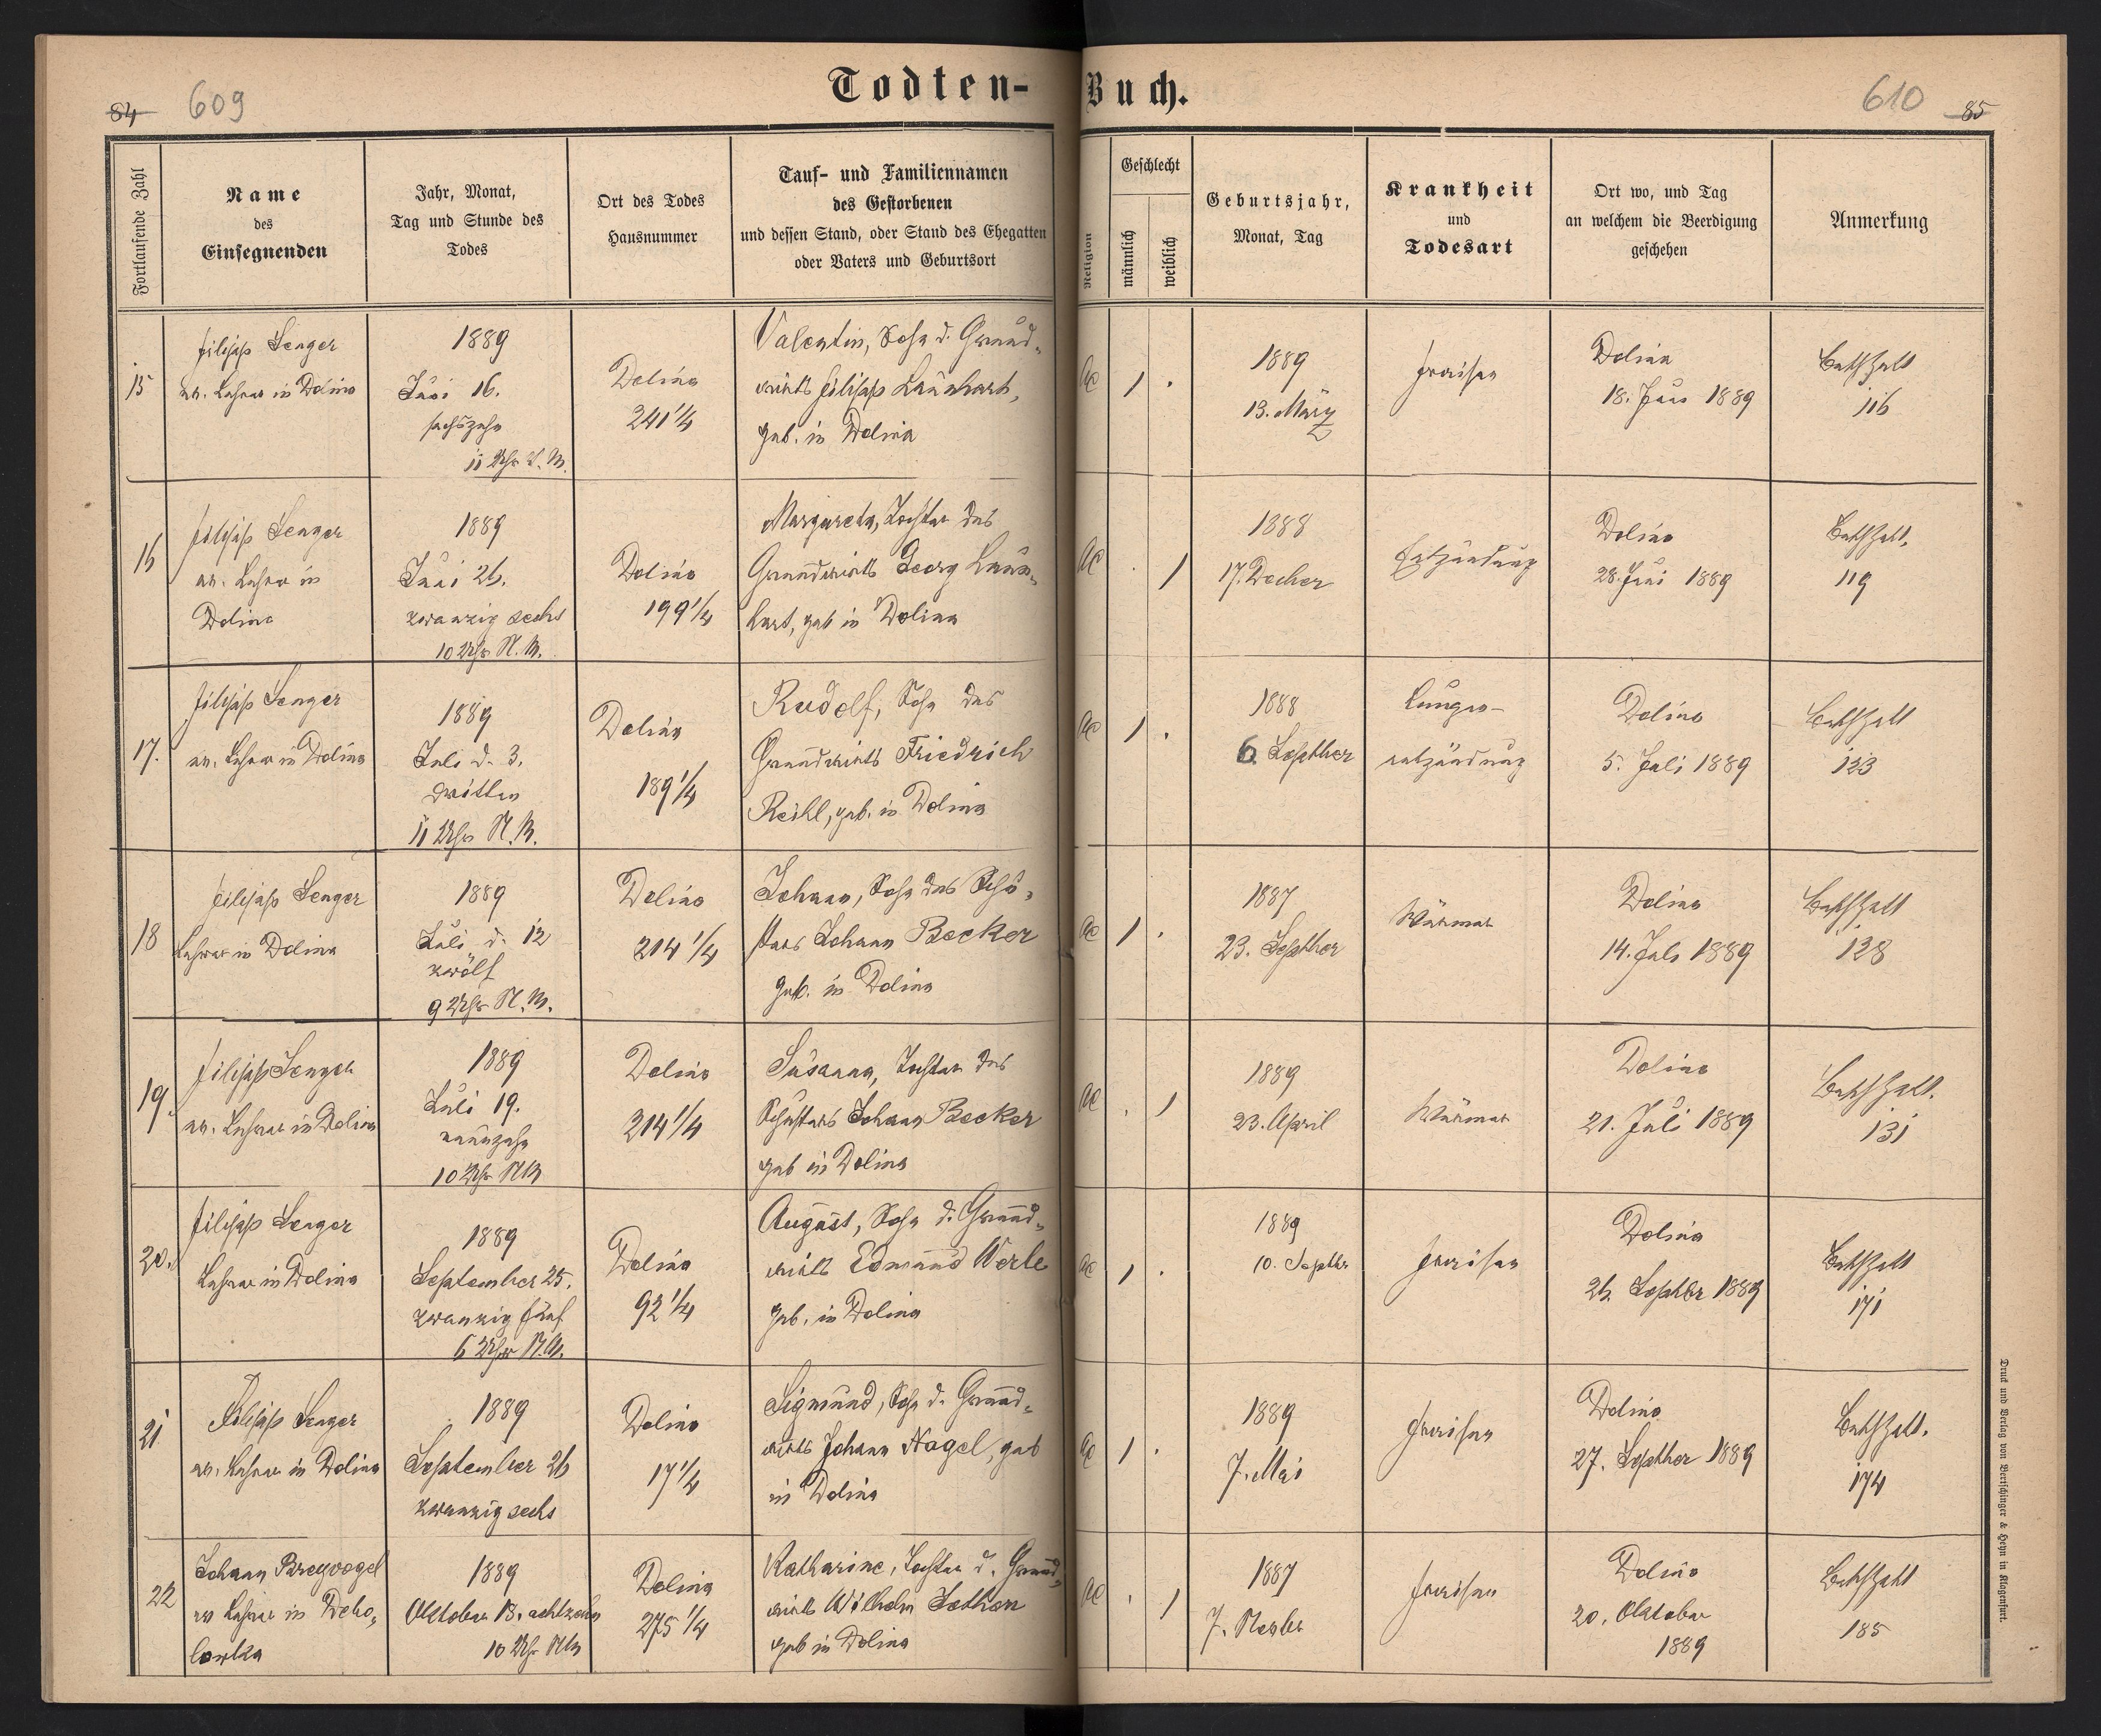 Todten-Buch.
84 609
610 85
Fortlaufende Zahl
Name
des
Einsegnenden
Jahr, Monat,
Tag und Stunde des
Todes
Ort des Todes
Hausnummer
Tauf- und Familiennamen
des Gestorbenen
und dessen Stand, oder Stand des Ehegatten
oder Vaters und Geburtsort
Religion
Geschlecht
männlich
weiblich
Geburtsjahr,
Monat, Tag
Krankheit
und
Todesart
Ort wo, und Tag
an welchem die Beerdigung
geschehen
Anmerkung
15
Filipp Senger
ev. Lehrer in Dolina
1889
Juni 16.
sechszehn
11 Uhr V. M.
Dolina
241 1/4
Valentin, Sohn d. Grund-
wirts Filipp Launhart,
geb. in Dolina
AC
1 .
1889
13. März
Fraisen
Dolina
18. Juni 1889
Bethzalt
116
16
Filipp Senger
ev. Lehrer in
Dolina
1889
Juni 26.
zwanzig sechs
10 Uhr N. M.
Dolina
199 1/4
Margareta, Tochter des
Grundwirts Georg Laun-
hart, geb in Dolina
AC
. 1
1888
17. Decber
Entzündung
Dolina
28. Juni 1889
Bethzalt.
119
17.
Filipp Senger
ev. Lehrer in Dolina
1889
Juli d. 3.
dritten
11 Uhr N. M.
Dolina
189 1/4
Rudolf, Sohn des
Grundwirts Friedrich
Reihl, geb. in Dolina
AC
1 .
1888
6. Septber
Lungen-
entzündung
Dolina
5. Juli 1889
Bethzalt
123
18
Filipp Senger
Lehrer in Dolina
1889
Juli d. 12
zwölf
9 Uhr N. M.
Dolina
214 1/4
Johann, Sohn des Schu-
sters Johann Becker
geb. in Dolina
AC
1 .
1887
23. Septber
Würmer
Dolina
14. Juli 1889
Bethzalt
128
19.
Filipp Senger
ev. Lehrer in Dolina
1889
Juli 19.
neunzehn
10 Uhr NM
Dolina
214 1/4
Susanna, Tochter des
Schusters Johann Becker
geb in Dolina
AC
. 1
1889
23. April
Würmer
Dolina
21. Juli 1889
Bethzalt.
131
20.
Filipp Senger
Lehrer in Dolina
1889
September 25.
zwanzig fünf
6 Uhr N. M.
Dolina
92 1/4
August, Sohn d. Grund-
wirts Edmund Werle
geb. in Dolina
AC
1 .
1889
10. Septbr
Fraisen
Dolina
26. Septbr 1889
Bethzalt
171
21.
Filipp Senger
ev. Lehrer in Dolina
1889
September 26
zwanzig sechs
Dolina
17 1/4
Sigmund, Sohn d. Grund-
wirts Johann Nagel, geb
in Dolina
AC
1 .
1889
7. Mai
Fraisen
Dolina
27. Septber 1889
Bethzalt.
174
22
Johann Bregvogel
ev Lehrer in Debo-
lowka
1889
Oktober 18. achtzehn
10 Uhr NM
Dolina
275 1/4
Katharine, Tochter d. Grund-
wirts Wilhelm
geb in Dolina
AC
. 1
1887
7. Novbr
Fraisen
Dolina
20. Oktober
1889
Bethzalt
185
Druck und Verlag von Bertschinger & Heyn in Klagenfurt.